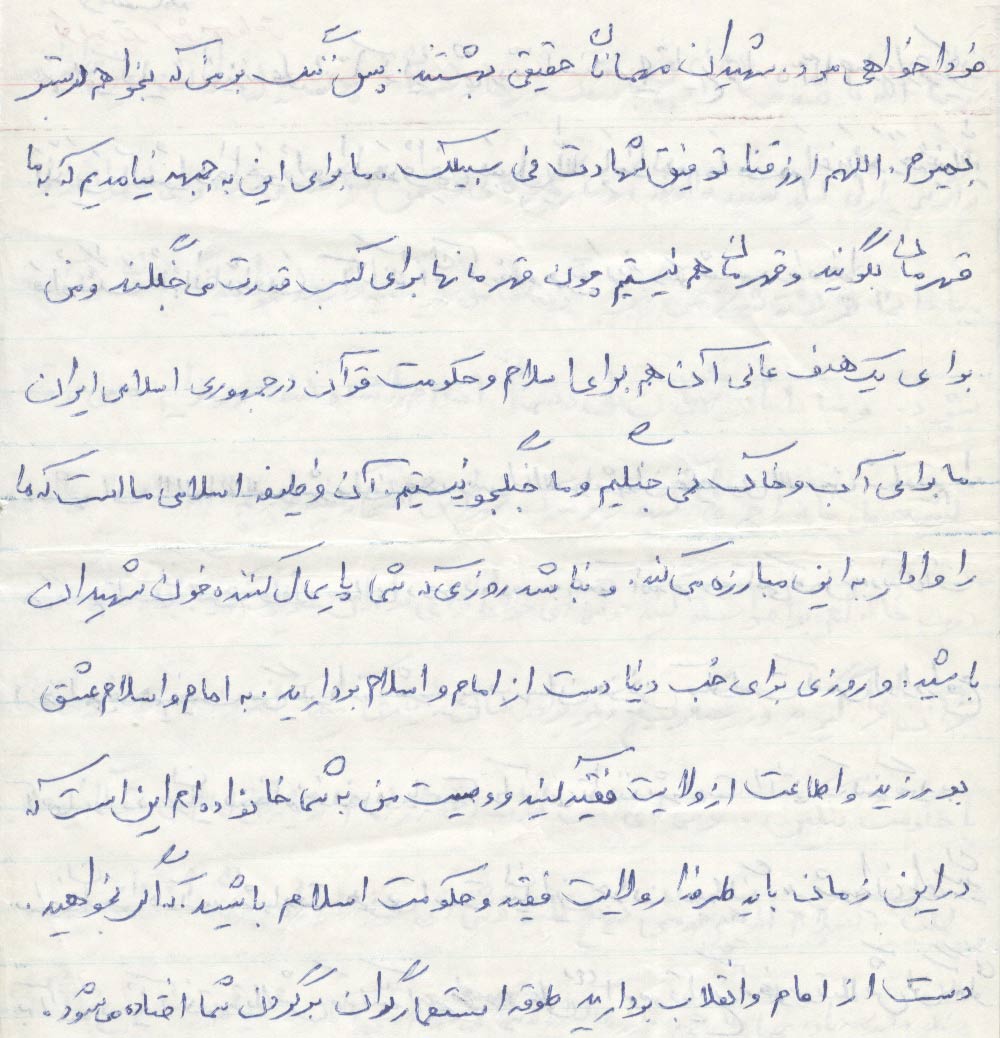 فردا خواهی مرد. شهیدان مهمانان حقیقی بهشتند. پس ننگ بر من که بخواهم در بستر
بمیرم. اللهم ارزقنا توفیق شهادت فی سبیلک. ما برای این به جبهه نیامدیم که به ما
قهرمان بگویند و قهرمان هم نیستیم چون قهرمانها برای کسب قدرت می جنگند و من
برای یک هدف عالی آن هم برای اسلام و حکومت قرآن در جمهوری اسلامی ایران
ما برای آب و خاک نمی جنگیم و ما جنگجو نیستیم. آن وظیفه اسلامی ما است که ما
را وادار به این مبارزه می کند. و نباشد روزی که شما پایمال کننده خون شهیدان
باشید. و روزی برای حب دنیا دست از امام و اسلام بردارید. به امام و اسلام عشق
بورزید و اطاعت از ولایت فقیه کنید و وصیت من به شما خانواده ام این است که
در این زمان باید طرفدار ولایت فقیه و حکومت اسلام باشید. که اگر بخواهید.
دست از امام و انقلاب بردارید طوق استعمارگران بر گردن شما افتاده می شود.